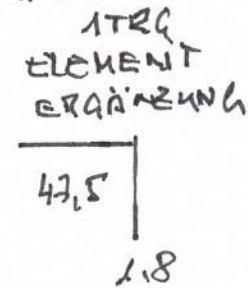 1TRG
ELEMENT
ERGÄNZUNG
47,5
1,8